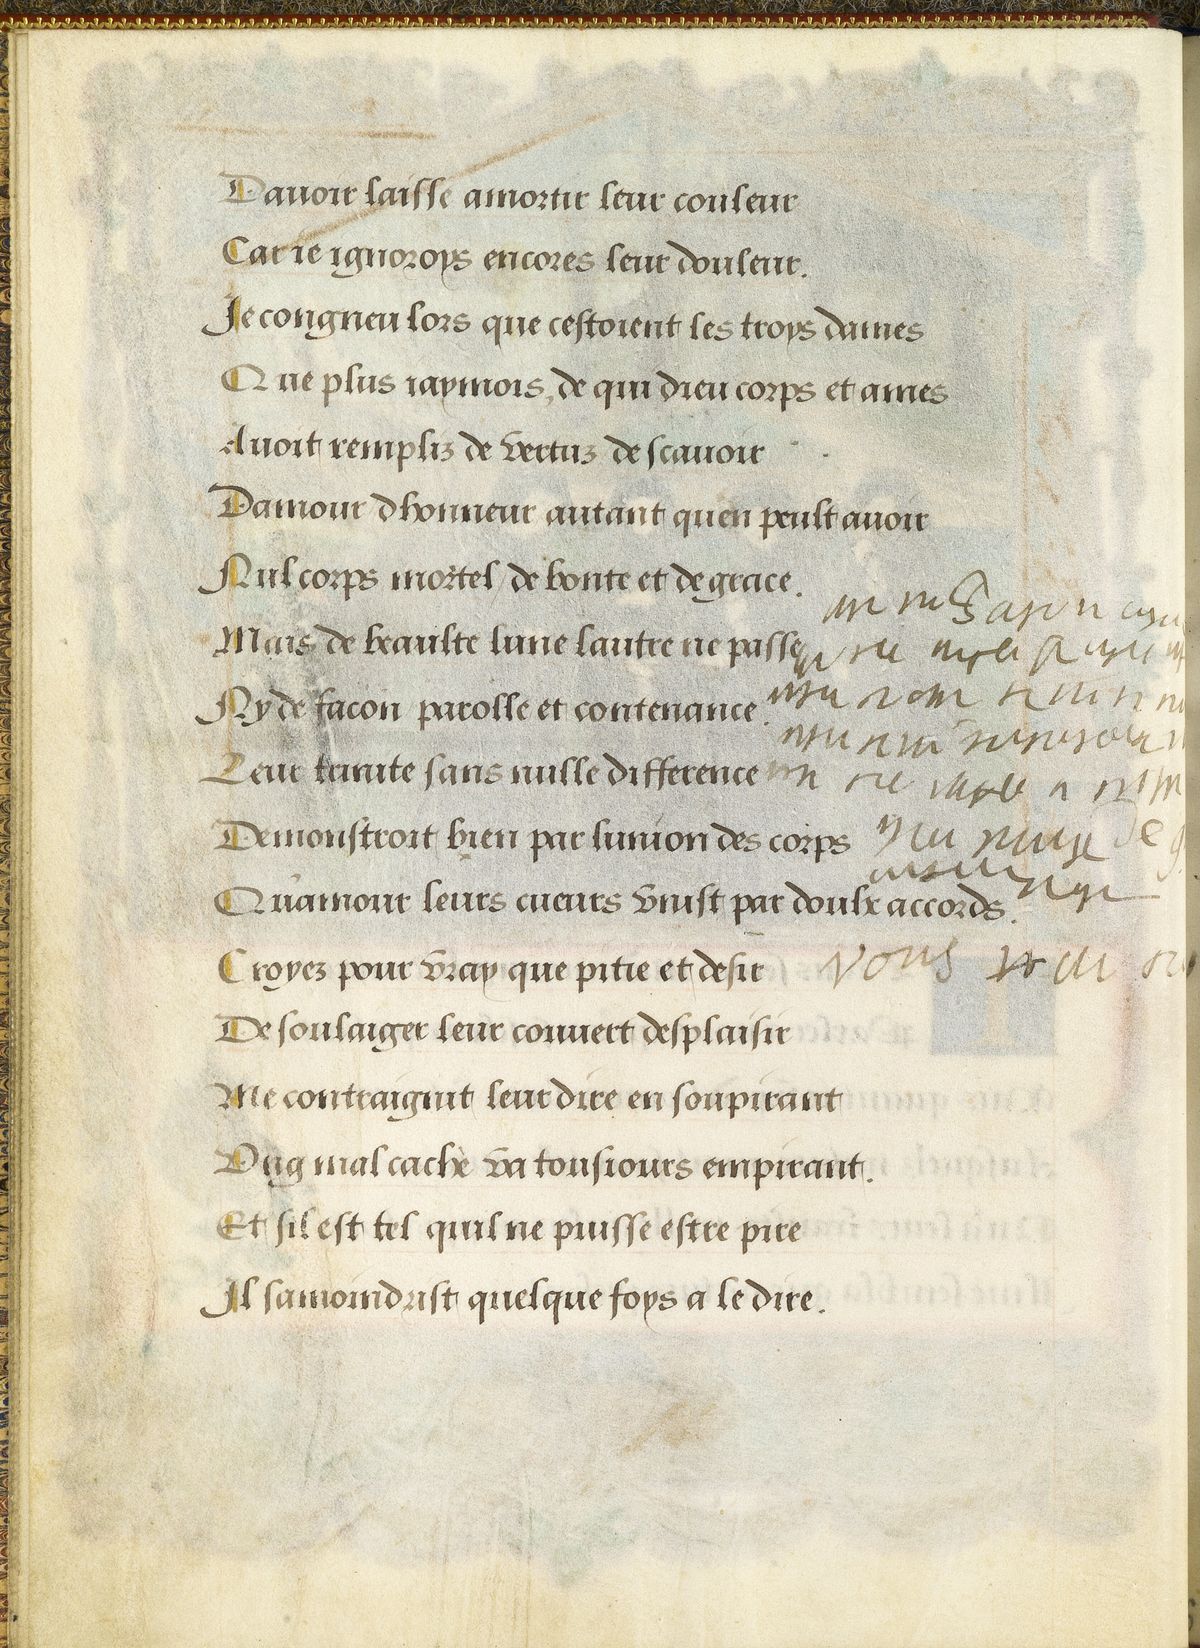 Dauoir laisse amortir leur couleur
Car ie ignoroys encores leur douleur.
Je congneu lors que cestoient les troys dames
Que plus iaymois, de qui dieu corps et ames
Auoit rempliz de vertuz de scauoir
Damour dhonneur autant quen peult auoir
Nul corps mortel, de bonte et de grace.
Mais de beaulte lune lautre ne passe
Ny de facon parolle et contenance.
Leur trinite sans nulle difference
Demonstroit bien par lunion des corps
Quamour leurs cueurs vnist par doulx accords.
Croyez pour vray que pitie et desir
vous
De soulaiger leur couuert desplaisir
Me contraignit leur dire en soupirant
Vng mal cache va tousiours empirant.
Et sil est tel quil ne puisse estre pire
Il samoindrist quelque foys a le dire.